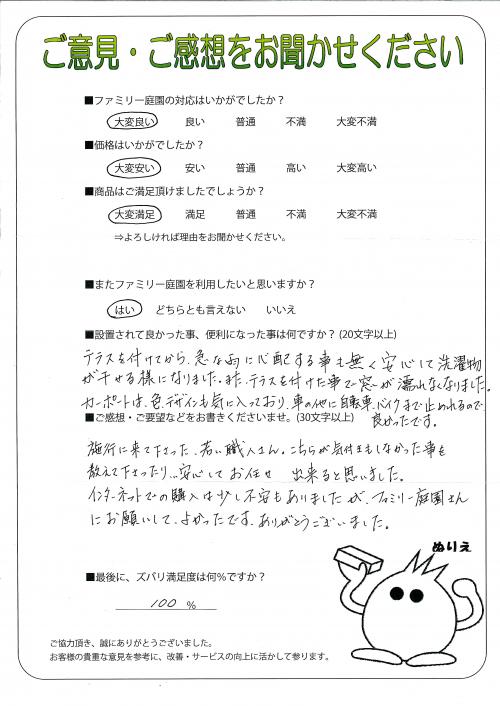 ご意見・ご感想をお聞かせください
■ファミリー庭園の対応はいかがでしたか？
大変良い 良い 普通 不満 大変不満
■価格はいかがでしたか？
大変安い 安い 普通 高い 大変高い
■商品はご満足頂けましたでしょうか？
大変満足 満足 普通 不満 大変不満
⇒よろしければ理由をお聞かせください。
■またファミリー庭園を利用したいと思いますか？
はい どちらとも言えない いいえ
■設置されて良かった事、便利になった事は何ですか？(20文字以上)
テラスを付けてから、急な雨に心配する事も無く安心して洗濯物
が干せる様になりました。また、テラスを付けた事で窓が濡れなくなりました。
カーポートは、色、デザインも気に入っており、車の他に自転車、バイクまで止めれるので
良かったです。
■ご感想・ご要望などをお書きくださいませ。(30文字以上)
施行に来て下さった、若い職人さん。こちらが気付きもしなかった事を
教えて下さったり…安心してお任せ 出来ると思いました。
インターネットでの購入は少し不安もありましたが、ファミリー庭園さん
にお願いして、よかったです。ありがとうございました。
ぬりえ
■最後に、ズバリ満足度は何%ですか？
100 %
ご協力頂き、誠にありがとうございました。
お客様の貴重な意見を参考に、改善・サービスの向上に活かして参ります。